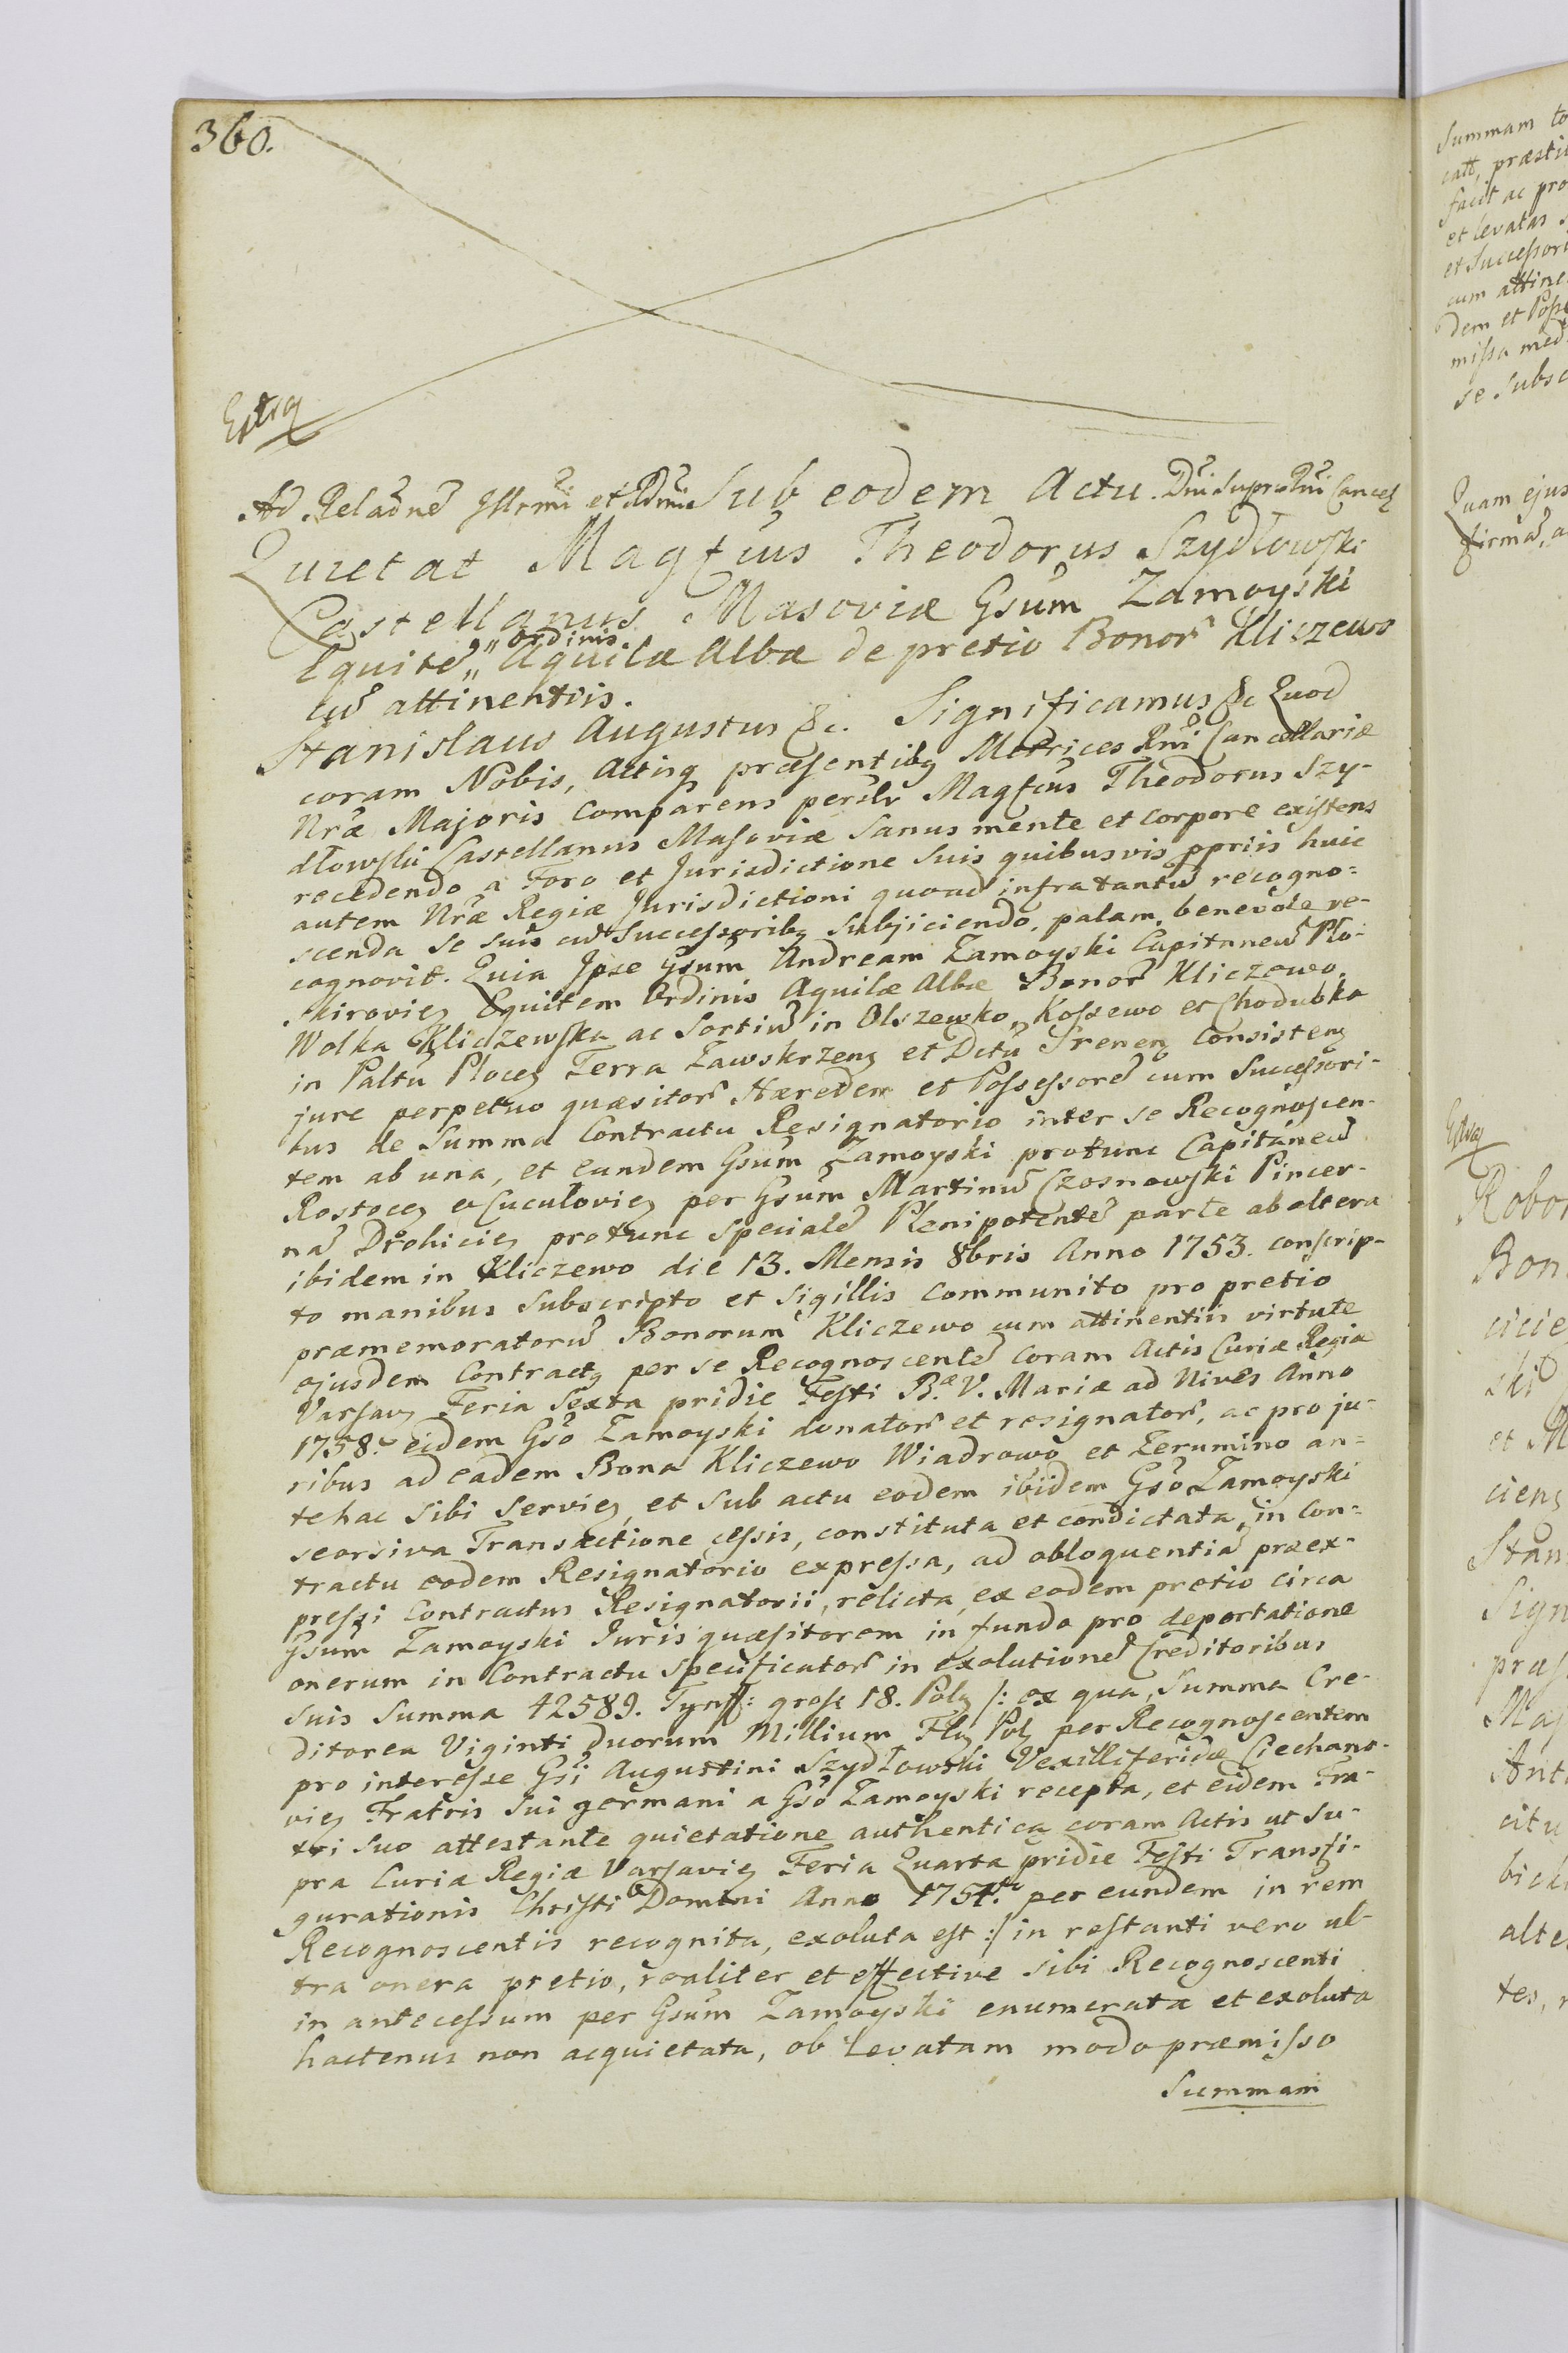 360.
Extrq
Ad Relaōnē Jllrmi et Rdmi Sub eodem Actu. Dni Supremi Cancell
Quietat Magfcus Theodorus Szydłowski
Castellanus Masoviæ Gsum Zamoyski
Equitē „ordinis„ Aquilæ Albæ de pretio Bonor Kliczewo
cū attinentiis.
Stanislaus Augustus &c. Significamus &c Quod
coram Nobis, Actisq præsentibq Metrices Rni Cancellariæ
Nræ Majoris comparens persłr Magfcus Theodorus Szy-
dłowski Castellanus Masoviæ sanus mente et corpore existens
recedendo a Foro et Jurisdictione suis quibusvis ppriis huic
autem Nræ Regiæ Jurisdictioni quoad infratantū recogno=
scenda se suis cū Successoribq subjiciendo, palam benevole re-
cognovit. Quia Jpse Gsum Andream Zamoyski Capitaneū Pło-
skirovien Equitem Ordinis Aquilæ Albæ Bonor Kliczewo,
Wolka Kliczewska ac Sortiū in Olszewko, Kossewo et Chodubka
in Paltu Plocen Terra Zawskrzen et Dctu Srenen consisten
jure perpetuo quæsitor Hæredem et Possessorē cum Successori-
bus de Summa Contractu Resignatorio inter se Recognoscen-
tem ab una, et eundem Gsum Zamoyski protunc Capitaneū
Rostocen et Cucułovien per Gsum Martinū Czosnowski Pincer-
nā Drohicien protunc specialē Plenipotentē parte ab altera
ibidem in Kliczewo die 13. Mensis 8bris Anno 1753. conscrip-
to manibus subscripto et sigillis communito pro pretio
præmemoratorū Bonorum Kliczewo cum attinentiis virtute
ejusdem Contractq per se Recognoscentē coram Actis Curiæ Regiæ
Varsavn Feria Sexta pridie Festi B.æ V. Mariæ ad Nives Anno
1758. eidem Gso Zamoyski donator et resignator, ac pro ju-
ribus ad eadem Bona Kliczewo Wiadrowo et Zerumino an-
tehac sibi servien, et sub actu eodem ibidem Gso Zamoyski
seorsiva Transactione cessis, constituta et condictata, in Con-
tractu eodem Resignatorio expressa, ad obloquentiā præex-
pressi Contractus Resignatorii, relicta, ex eodem pretio circa
Gsum Zamoyski Juris quæsitorem in fundo pro deportatione
onerum in Contractu specificator in exolutionē Creditoribus
suis Summa 42589. Tynff: gross 18. Poln /: ex qua, Summa Cre-
ditorea Viginti duorum Millium Flq Pol per Recognoscentem
pro interesse Gsi Augustini Szydłowski Vexilliferidæ Ciechano-
vien Fratris sui germani a Gso Zamoyski recepta, et eidem Fra-
tri suo attestante quietatione authentica coram Actis ut su-
pra Curiæ Regiæ Varsavien Feria Quarta pridie Festi Transfi-
gurationis Christi Domini Anno 1754. per eundem in rem
Recognoscentis recognita, exoluta est :/ in restanti vero ul-
tra onera pretio, realiter et effective sibi Recognoscenti
in antecessum per Gsum Zamoyski enumerata et exoluta
hactenus non acquietata, ob levatam modo præmisso
Summam
Summam
præsti
facit ac pro
et levatas
et Successori
cum attine
dem et Posse
missa med
se subsc
Quam ejus
firmā, a
Robor
Bon
cicie
ski
et M
ciens
Stan
Sign
præs
Maj
Ant
citu
alte
tes,